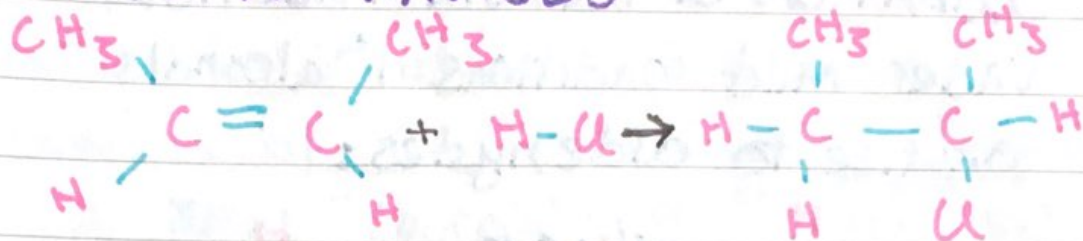 CH3 CH3 CH3 CH3
C = C + H-Cl → H - C - C - H
H H H Cl